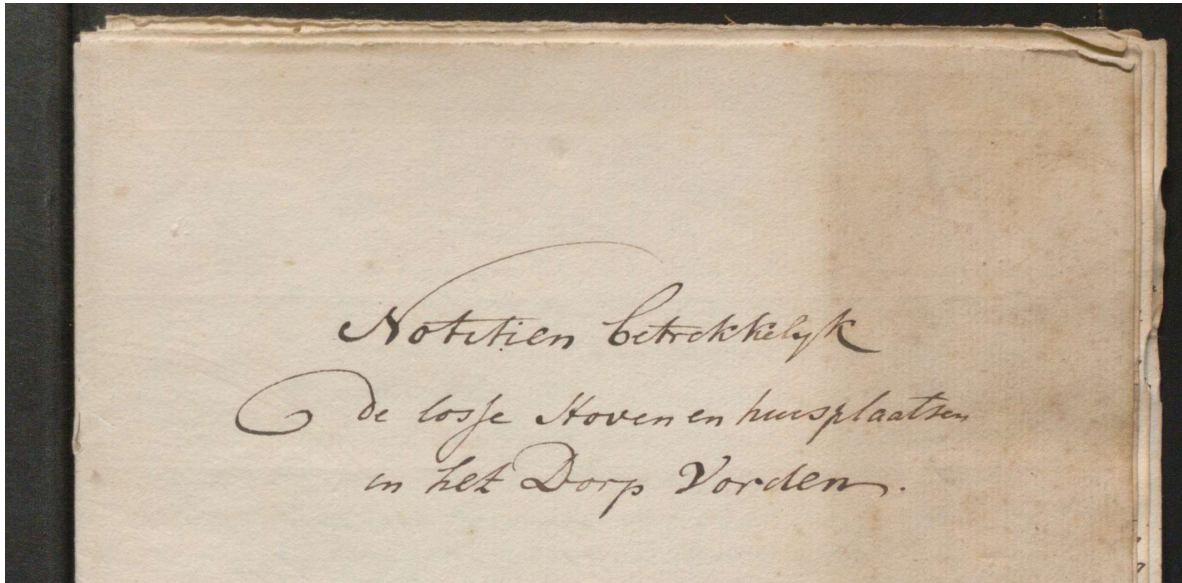 Notitien betrekkelyk
de losse Hoven en huisplaatsen
in het Dorp Vorden.